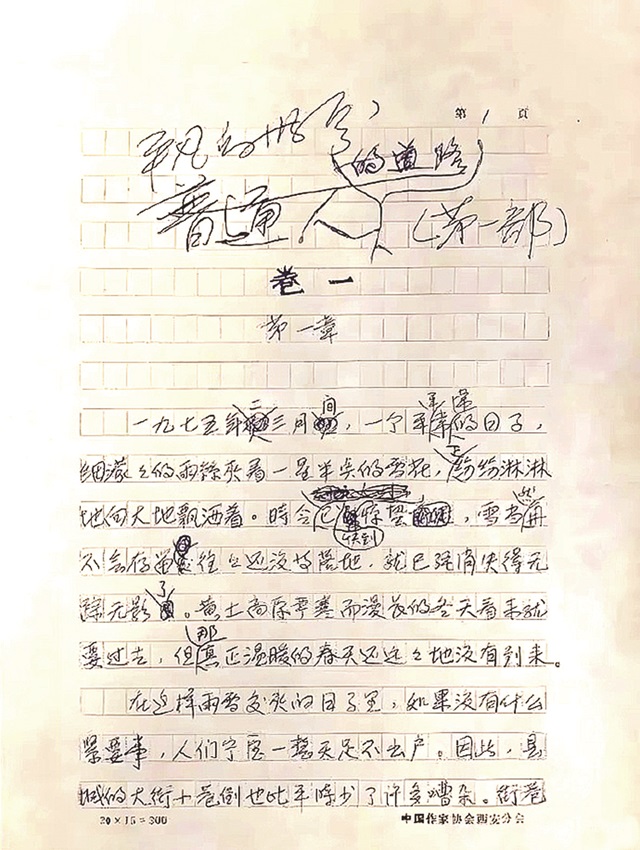 第 1 頁
平凡的世界
的道路
普通人（第一部）
卷一
第一章
一九七五年二三月间，一个平平常常的日子，
细濛々的雨丝夹着一星半点的雪花，正纷纷淋淋
地向大地飘洒着。時令已快到惊蛰，雪当然再
不会存留，往々还没等落地，就已经消失得无
踪无影了。黄土高原严寒而漫长的冬天看来就
要过去，但那真正温暖的春天还远々地没有到来。
在这样雨雪交夹的日子里，如果没有什么
紧要事，人们宁愿一整天足不出户。因此，县
城的大街小巷倒也比平時少了许多嘈杂。街巷
20×15=300 中国作家协会西安分会